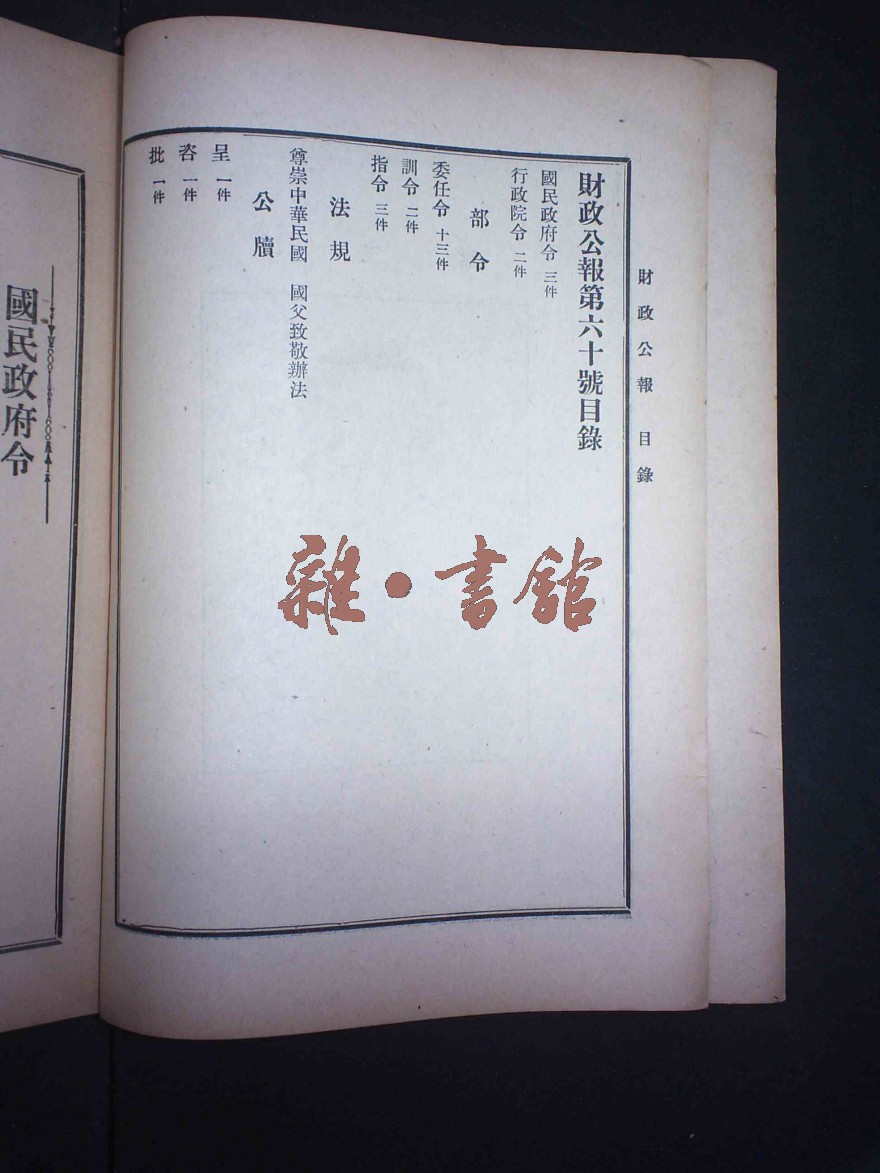 財政公報 目錄
財政公報第六十號目錄
國民政府令 三件
行政院令 二件
部令
委任令 十三件
訓令 二件
指令 三件
法規
尊崇中華民國 國父致敬辦法
公牘
呈 一件
咨 一件
批 一件
國民政府令
雜·書館